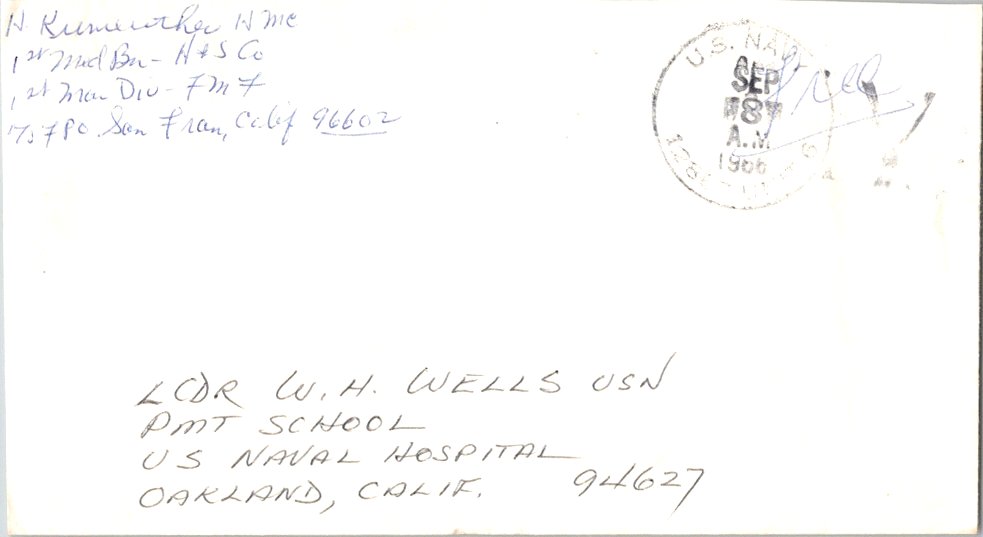 H. HMC
1st Med Bn - H & S Co
1st Mar Div - FMF
FPO San Fran, Calif 96602
U.S. NAVY
SEP
8
A.M
1966
Free
LCDR W. H. WELLS USN
PMT SCHOOL
US NAVAL HOSPITAL
OAKLAND, CALIF. 94627